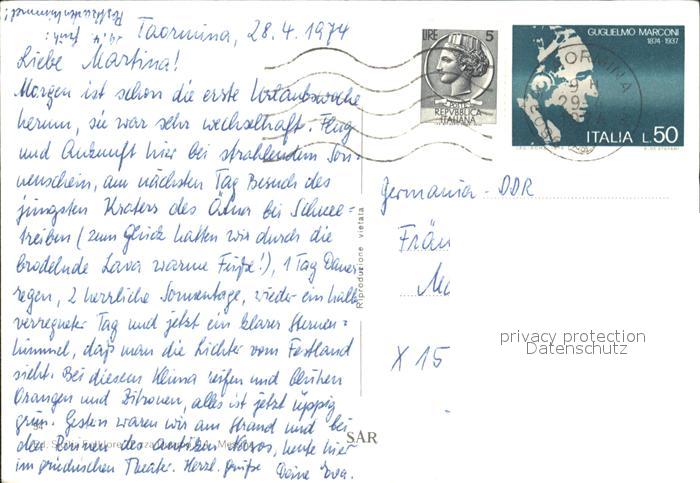 Taormina, 28.4.1974
Liebe Martina!
Morgen ist schon die erste Urlaubswoche
herum, sie war sehr wechselhaft. Flug
und Ankunft hier bei strahlendem Son-
nenschein, am nächsten Tag Besuch des
jüngsten Kraters des Ätna bei Schnee-
treiben (zum Glück hatten wir durch die
brodelnde Lava warme Füße!), 1 Tag Dauer
regen, 2 herrliche Sonnentage, wieder ein halb
verregneter Tag und jetzt ein klarer Sternen-
himmel, daß man die Lichter vom Festland
sieht. Bei diesem Klima reifen und blühen
Orangen und Zitronen, alles ist jetzt üppig
grün. Gestern waren wir am Strand und bei
den Ruinen des antiken Naxos, heute hier
im griechischen Theater. Herzl. Grüße Deine Eva.
LIRE 5
REPUBBLICA
ITALIANA
GUGLIELMO MARCONI
1874-1937
ITALIA L.50
Riproduzione vietata
Germania - DDR
Fräu
X 15
privacy protection
Datenschutz
SAR